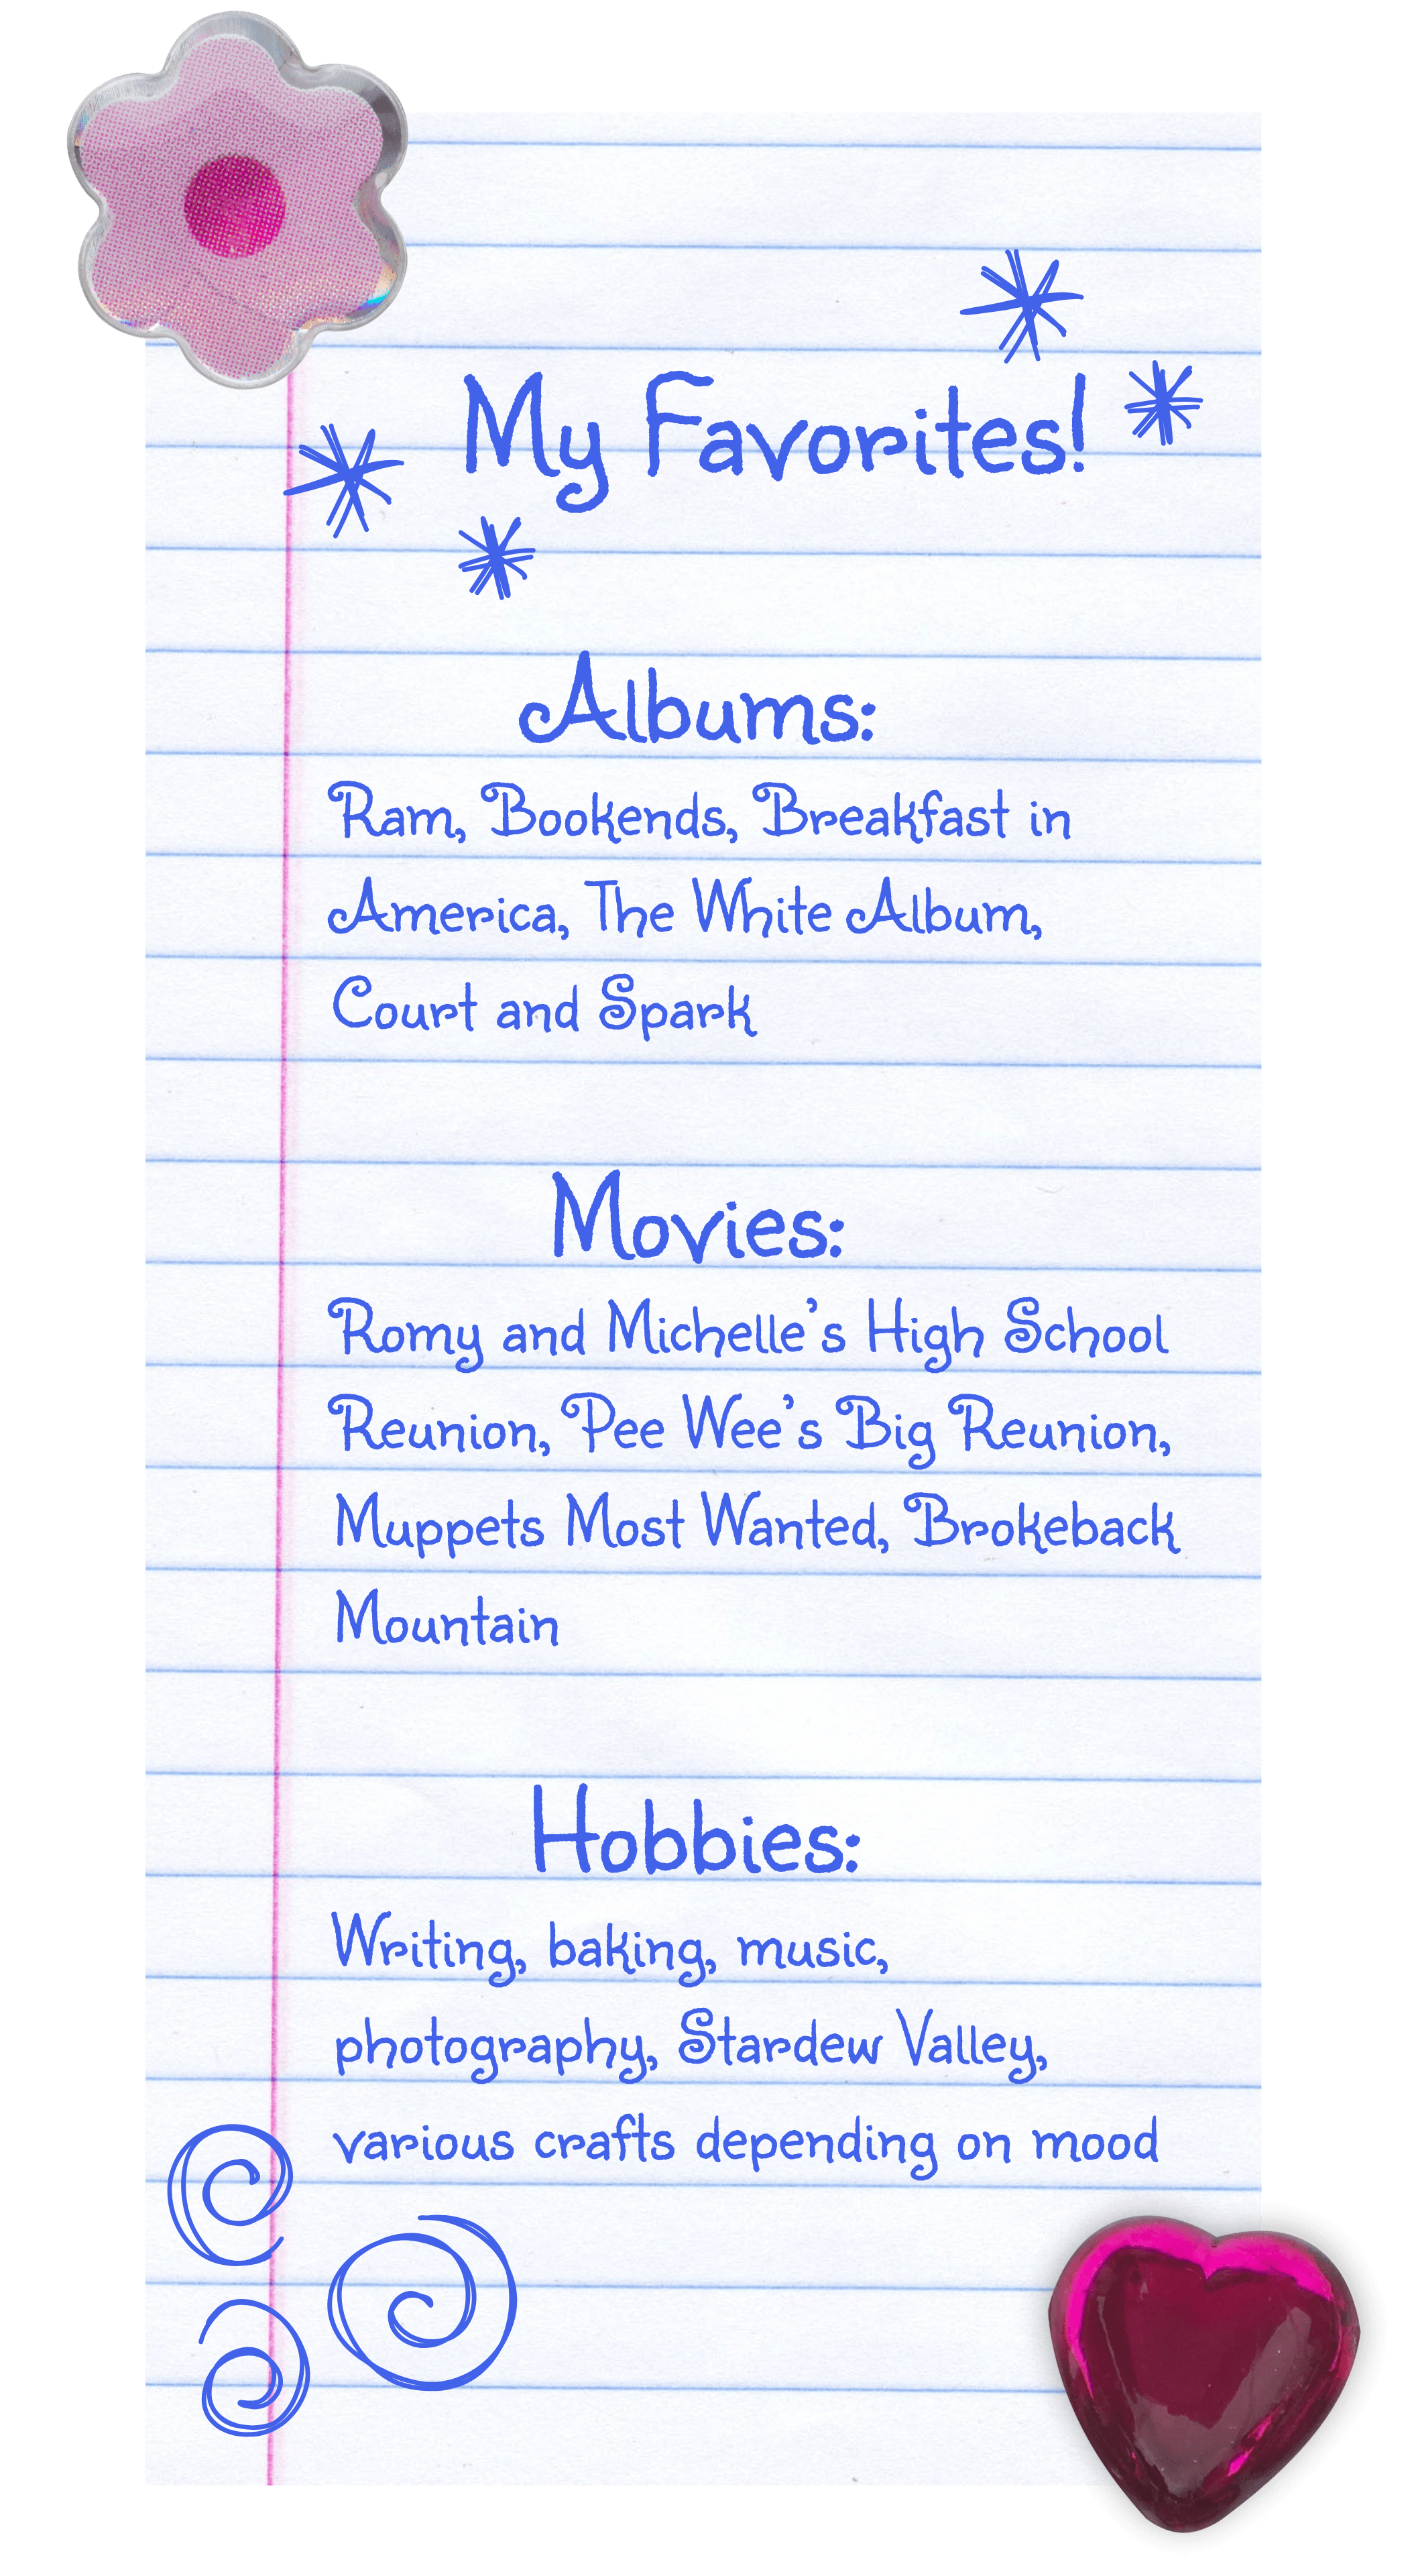 My Favorites!
Albums:
Ram, Bookends, Breakfast in
America, The White Album,
Court and Spark
Movies:
Romy and Michelle's High School
Reunion, Pee Wee's Big Reunion,
Muppets Most Wanted, Brokeback
Mountain
Hobbies:
Writing, baking, music,
photography, Stardew Valley,
various crafts depending on mood